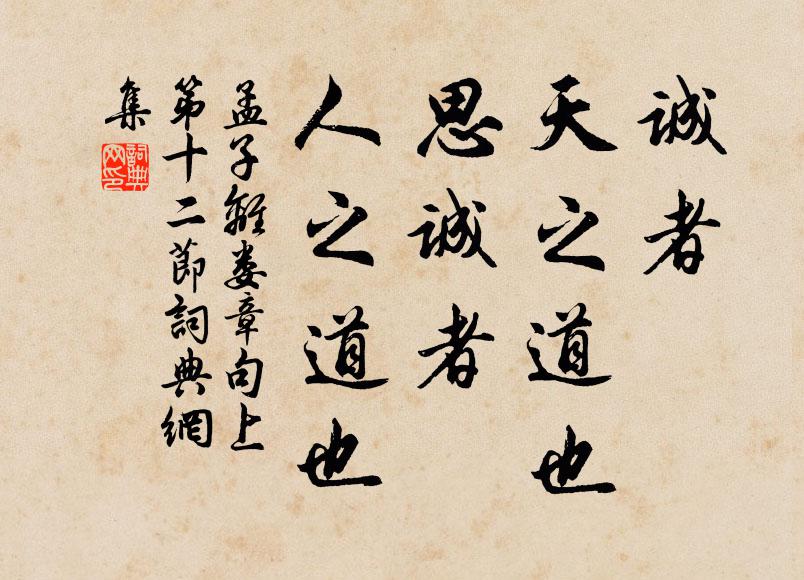 誠者
天之道也
思誠者
人之道也
孟子離婁章句上
第十二節詞典網
集
詞典
网印